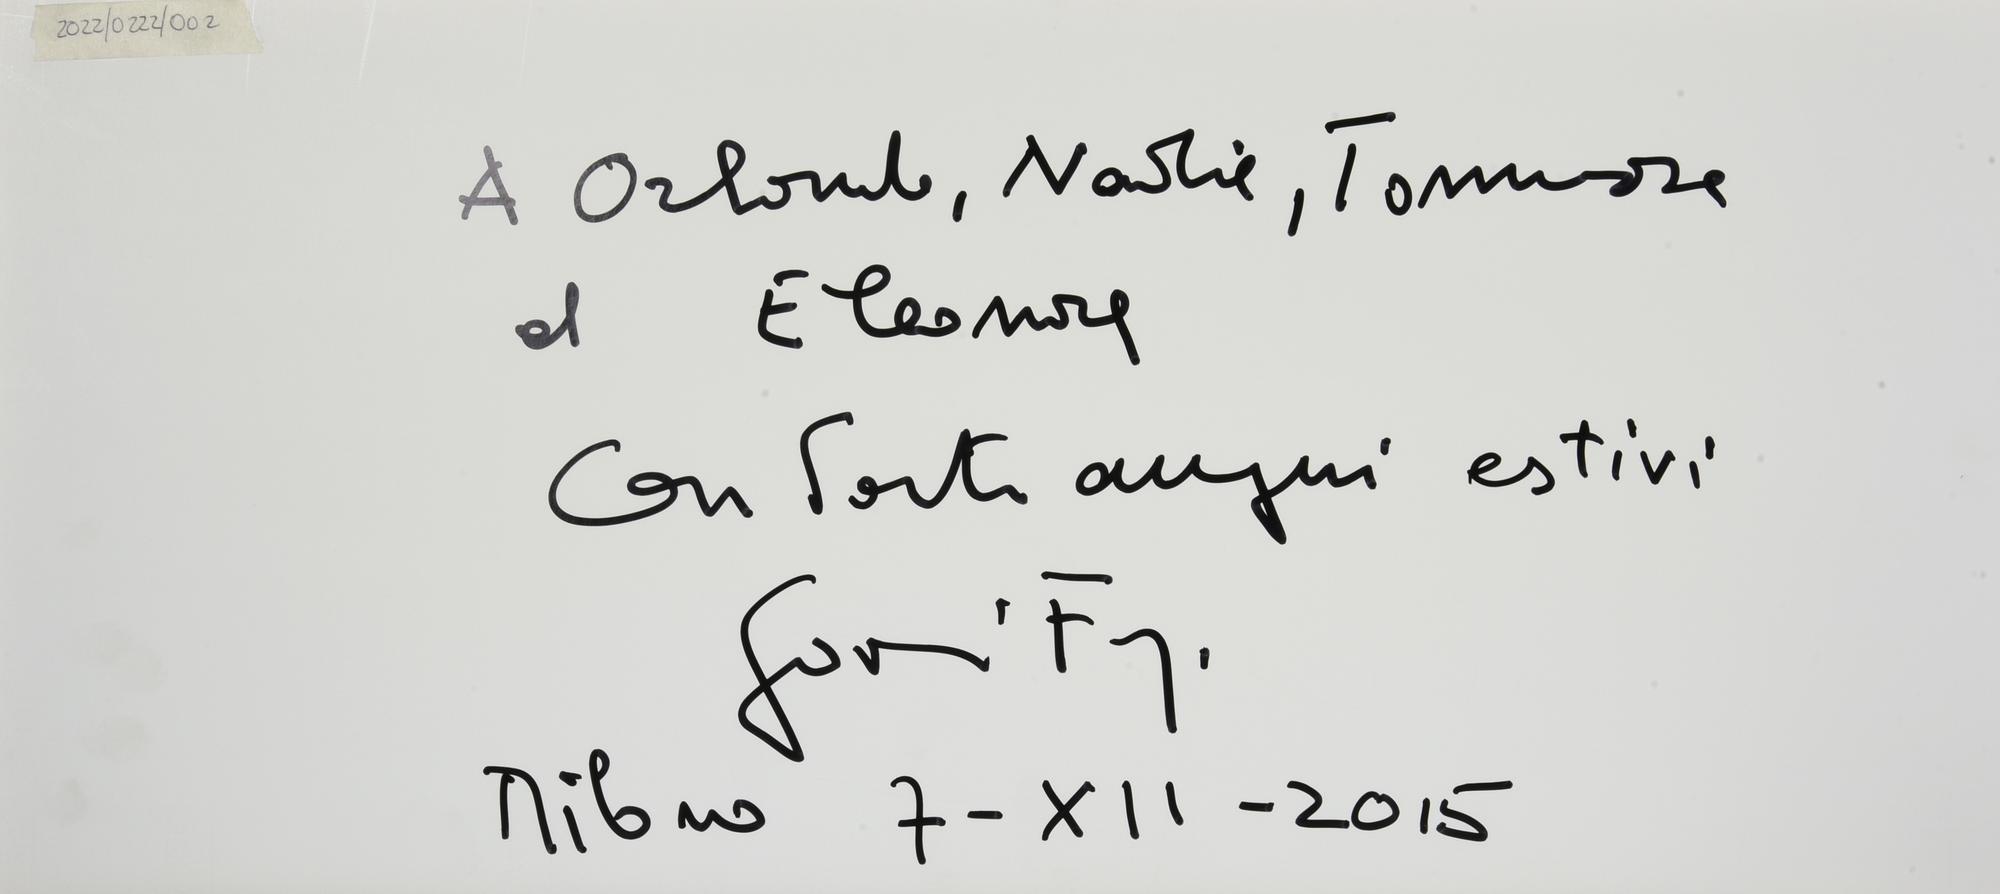 2022/0222/002
A Orlando, Nadia, Tommaso
ed Eleonora
Con forti auguri estivi
Milano 7-XII-2015